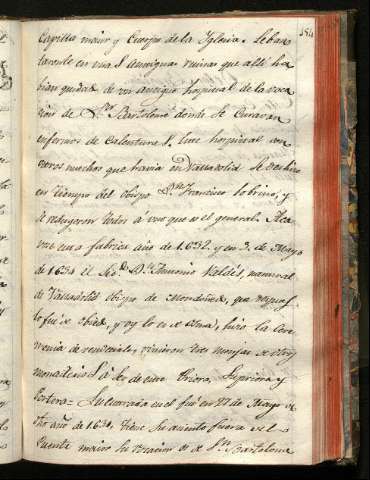 154
Capilla maior y Cuerpo de la Iglesia. Leban
taronle en unas antiguas ruinas que alli ha
bian quedado de un antiguo hospital de la voca
cion de Sn. Bartolomé donde se curavan
enfermos de calenturas. Este hospital con
otros muchos que havia en Valladolid se deshizo
en tiempo del obispo Dn. Francisco Sobrino, y
se redugeron todos á uno que es el general. Aca
vose esta fabrica año de 1632. y en 3. de Mayo
de 1634 el Sor. Dn. Antonio Valdés, natural
de Valladolid Obispo de Mondoñedo, que despues
lo fué de Obiedo, y oy lo es de Osma, hizo la Cere
monia de vendecirle, vinieron tres monjas de otros
monasterios á ser de este Priora, Supriora y
Portera = Su encierro en el fué en 27 de Mayo de
dho año de 1634, tiene su asiento fuera de el
Puente maior su vocacion es de Sn. Bartolome